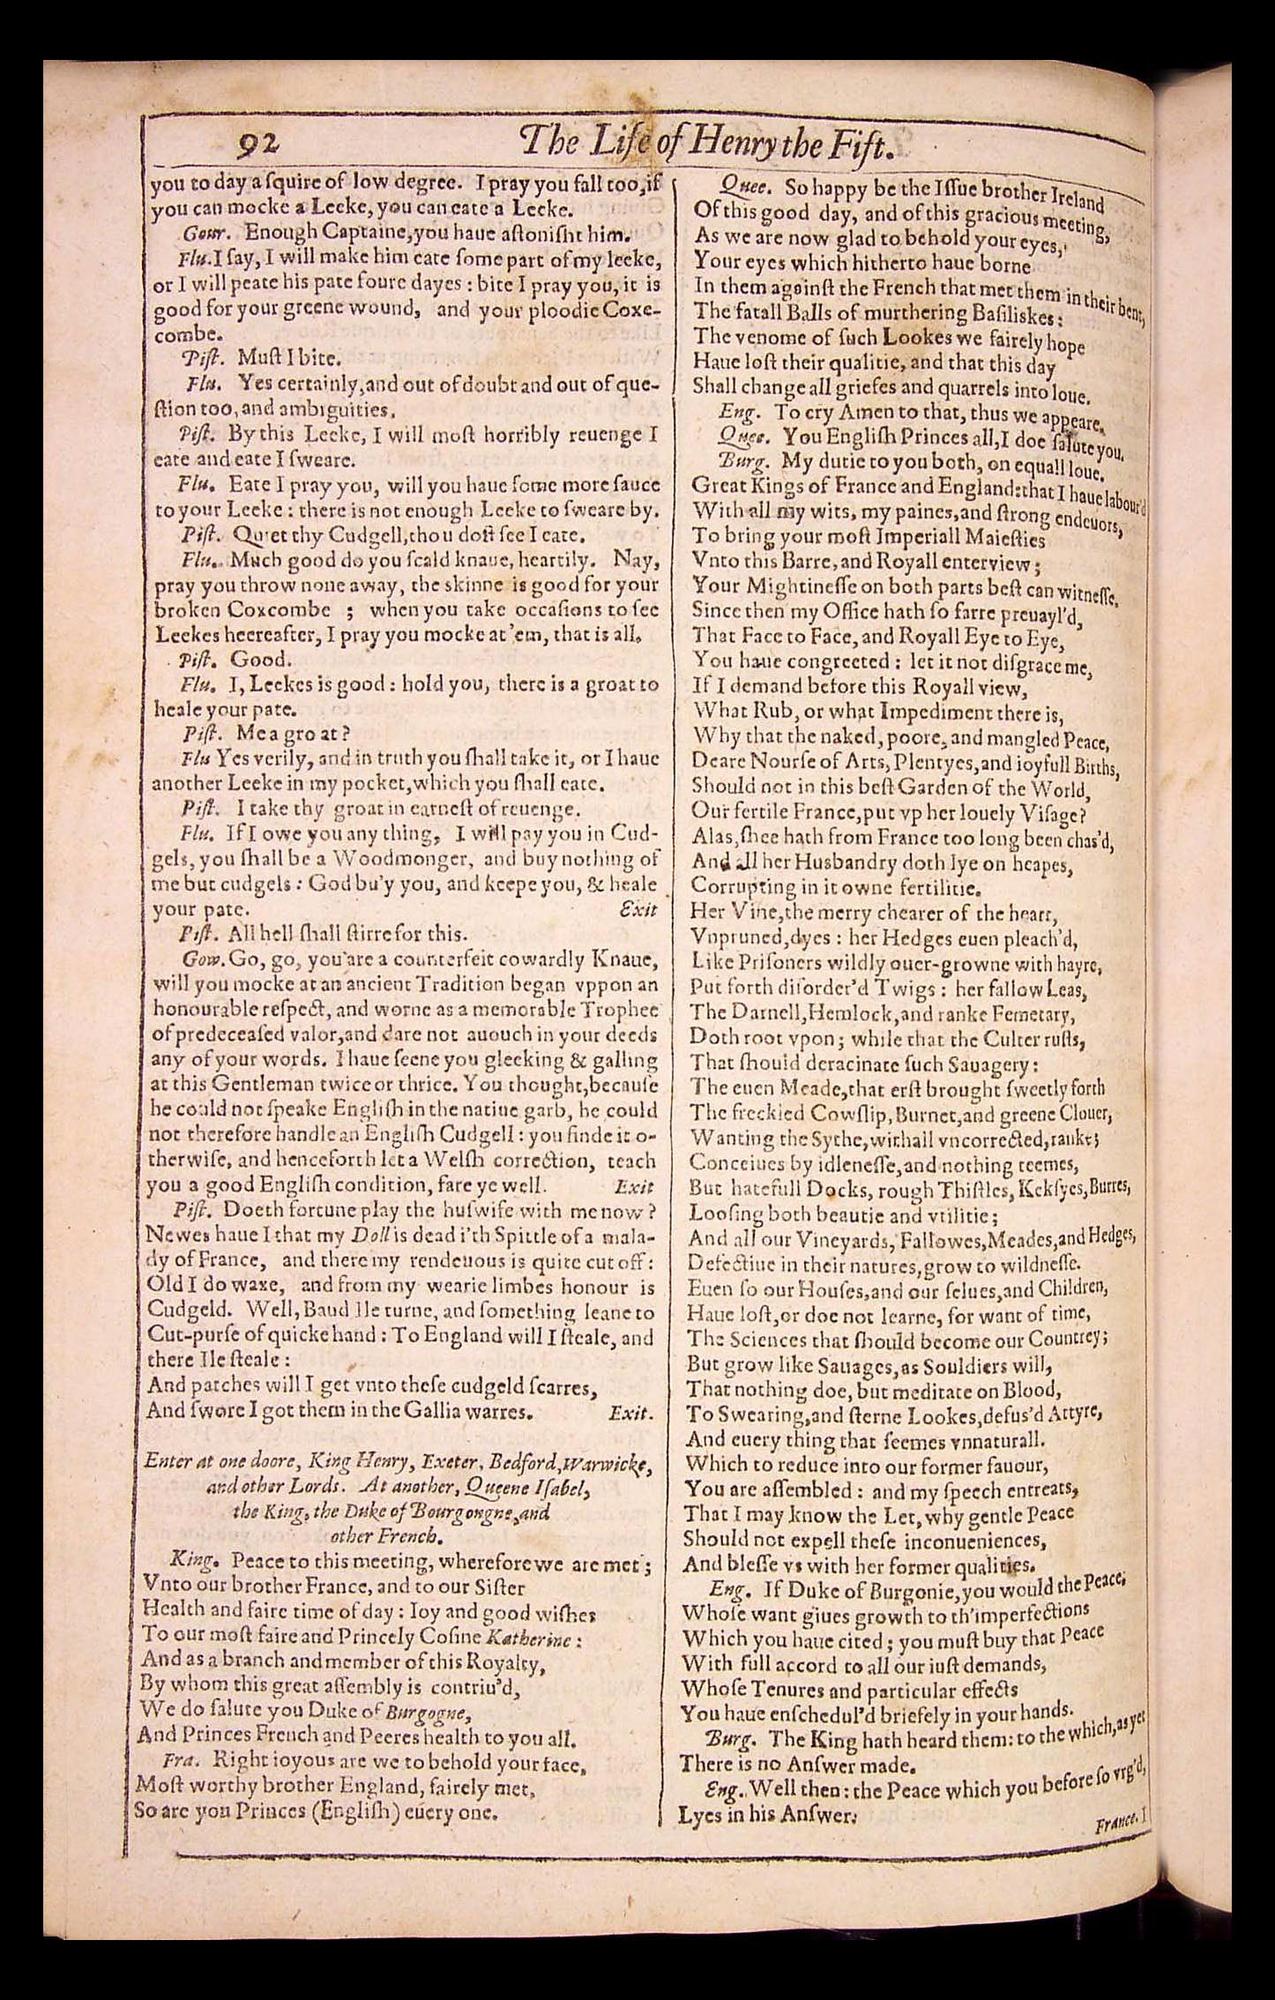 92
The Life of Henry the Fift.
you to day a ſquire of low degree. I pray you fall too, if
you can mocke a Leeke, you can eate a Leeke.
Gour. Enough Captaine, you haue aſtoniſht him.
Flu. I ſay, I will make him eate ſome part of my leeke,
or I will peate his pate foure dayes : bite I pray you, it is
good for your greene wound, and your ploodie Coxe-
combe.
Piſt. Muſt I bite.
Flu. Yes certainly, and out of doubt and out of que-
ſtion too, and ambiguities.
Piſt. By this Leeke, I will moſt horribly reuenge I
eate and eate I ſweare.
Flu. Eate I pray you, will you haue ſome more ſauce
to your Leeke : there is not enough Leeke to ſweare by.
Piſt. Quiet thy Cudgell, thou doſt ſee I eate.
Flu. Much good do you ſcald knaue, heartily. Nay,
pray you throw none away, the skinne is good for your
broken Coxcombe ; when you take occaſions to ſee
Leekes heereafter, I pray you mocke at 'em, that is all.
Piſt. Good.
Flu. I, Leekes is good : hold you, there is a groat to
heale your pate.
Piſt. Me a groat ?
Flu Yes verily, and in truth you ſhall take it, or I haue
another Leeke in my pocket, which you ſhall eate.
Piſt. I take thy groat in earneſt of reuenge.
Flu. If I owe you any thing, I will pay you in Cud-
gels, you ſhall be a Woodmonger, and buy nothing of
me but cudgels : God bu'y you, and keepe you, & heale
your pate. Exit
Piſt. All hell ſhall ſtirre for this.
Gow. Go, go, you are a counterfeit cowardly Knaue,
will you mocke at an ancient Tradition began vppon an
honourable reſpect, and worne as a memorable Trophee
of predeceaſed valor, and dare not auouch in your deeds
any of your words. I haue ſeene you gleeking & galling
at this Gentleman twice or thrice. You thought, becauſe
he could not ſpeake Engliſh in the natiue garb, he could
not therefore handle an Engliſh Cudgell : you finde it o-
therwiſe, and henceforth let a Welſh correction, teach
you a good Engliſh condition, fare ye well. Exit
Piſt. Doeth fortune play the huſwife with me now ?
Newes haue I that my Doll is dead i'th Spittle of a mala-
dy of France, and there my rendeuous is quite cut off :
Old I do waxe, and from my wearie limbes honour is
Cudgeld. Well, Baud Ile turne, and ſomething leane to
Cut-purſe of quicke hand : To England will I ſteale, and
there Ile ſteale :
And patches will I get vnto theſe cudgeld ſcarres,
And ſwore I got them in the Gallia warres. Exit.
Enter at one doore, King Henry, Exeter, Bedford, Warwicke,
and other Lords. At another, Queene Iſabel,
the King, the Duke of Bourgongne, and
other French.
King. Peace to this meeting, wherefore we are met ;
Vnto our brother France, and to our Siſter
Health and faire time of day : Ioy and good wiſhes
To our moſt faire and Princely Coſine Katherine :
And as a branch and member of this Royalty,
By whom this great aſſembly is contriu'd,
We do ſalute you Duke of Burgogne,
And Princes French and Peeres health to you all.
Fra. Right ioyous are we to behold your face,
Moſt worthy brother England, fairely met,
So are you Princes (Engliſh) euery one.
Quee. So happy be the Iſſue brother Ireland
Of this good day, and of this gracious meeting,
As we are now glad to behold your eyes,
Your eyes which hitherto haue borne
In them againſt the French that met them in their bent,
The fatall Balls of murthering Baſiliskes :
The venome of ſuch Lookes we fairely hope
Haue loſt their qualitie, and that this day
Shall change all griefes and quarrels into loue.
Eng. To cry Amen to that, thus we appeare.
Quee. You Engliſh Princes all, I doe ſalute you.
Burg. My dutie to you both, on equall loue.
Great Kings of France and England : that I haue labour'd
With all my wits, my paines, and ſtrong endeuors,
To bring your moſt Imperiall Maieſties
Vnto this Barre, and Royall enterview ;
Your Mightineſſe on both parts beſt can witneſſe.
Since then my Office hath ſo farre preuayl'd,
That Face to Face, and Royall Eye to Eye,
You haue congreeted : let it not diſgrace me,
If I demand before this Royall view,
What Rub, or what Impediment there is,
Why that the naked, poore, and mangled Peace,
Deare Nourſe of Arts, Plentyes, and ioyfull Births,
Should not in this beſt Garden of the World,
Our fertile France, put vp her louely Viſage ?
Alas, ſhee hath from France too long been chas'd,
And all her Husbandry doth lye on heapes,
Corrupting in it owne fertilitie.
Her Vine, the merry chearer of the heart,
Vnpruned, dyes : her Hedges euen pleach'd,
Like Priſoners wildly ouer-growne with hayre,
Put forth diſorder'd Twigs : her fallow Leas,
The Darnell, Hemlock, and ranke Femetary,
Doth root vpon ; while that the Culter ruſts,
That ſhould deracinate ſuch Sauagery :
The euen Meade, that erſt brought ſweetly forth
The freckled Cowſlip, Burnet, and greene Clouer,
Wanting the Sythe, withall vncorrected, ranke ;
Conceiues by idleneſſe, and nothing teemes,
But hatefull Docks, rough Thiſtles, Kekſyes, Burres,
Looſing both beautie and vtilitie ;
And all our Vineyards, Fallowes, Meades, and Hedges,
Defectiue in their natures, grow to wildneſſe.
Euen ſo our Houſes, and our ſelues, and Children,
Haue loſt, or doe not learne, for want of time,
The Sciences that ſhould become our Countrey ;
But grow like Sauages, as Souldiers will,
That nothing doe, but meditate on Blood,
To Swearing, and ſterne Lookes, defus'd Attyre,
And euery thing that ſeemes vnnaturall.
Which to reduce into our former fauour,
You are aſſembled : and my ſpeech entreats,
That I may know the Let, why gentle Peace
Should not expell theſe inconueniences,
And bleſſe vs with her former qualities.
Eng. If Duke of Burgonie, you would the Peace,
Whoſe want giues growth to th'imperfections
Which you haue cited ; you muſt buy that Peace
With full accord to all our iuſt demands,
Whoſe Tenures and particular effects
You haue enſchedul'd briefely in your hands.
Burg. The King hath heard them : to the which, as yet
There is no Anſwer made.
Eng. Well then : the Peace which you before ſo vrg'd,
Lyes in his Anſwer.
France. I